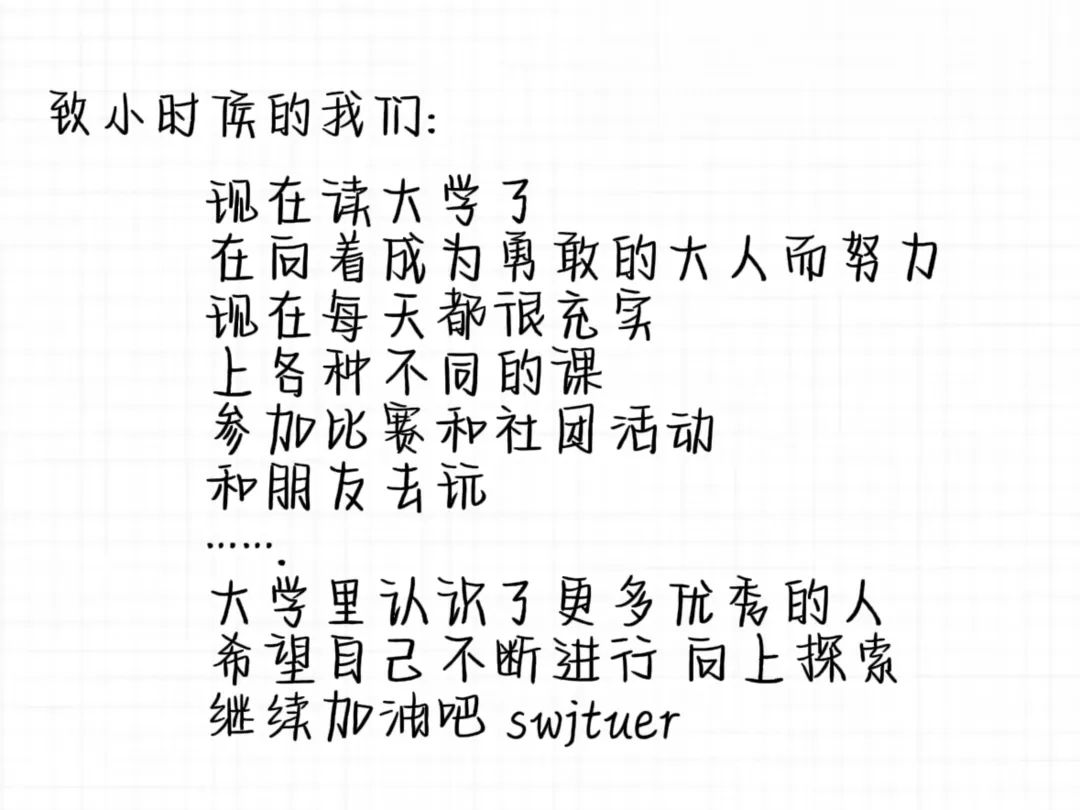 致小时候的我们:
现在读大学了
在向着成为勇敢的大人而努力
现在每天都很充实
上各种不同的课
参加比赛和社团活动
和朋友去玩
…….
大学里认识了更多优秀的人
希望自己不断进行 向上探索
继续加油吧 swjtuer